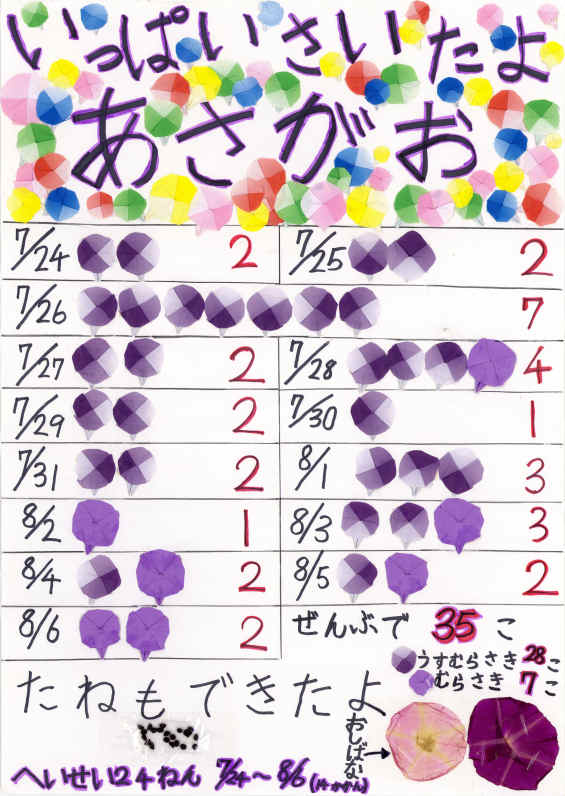 いっぱいさいたよ
あさがお
7/24 2
7/25 2
7/26 7
7/27 2
7/28 4
7/29 2
7/30 1
7/31 2
8/1 3
8/2 1
8/3 3
8/4 2
8/5 2
8/6 2
ぜんぶで 35 こ
うすむらさき 28こ
むらさき 7こ
たねもできたよ
おしばな→
へいせい24ねん 7/24〜8/6